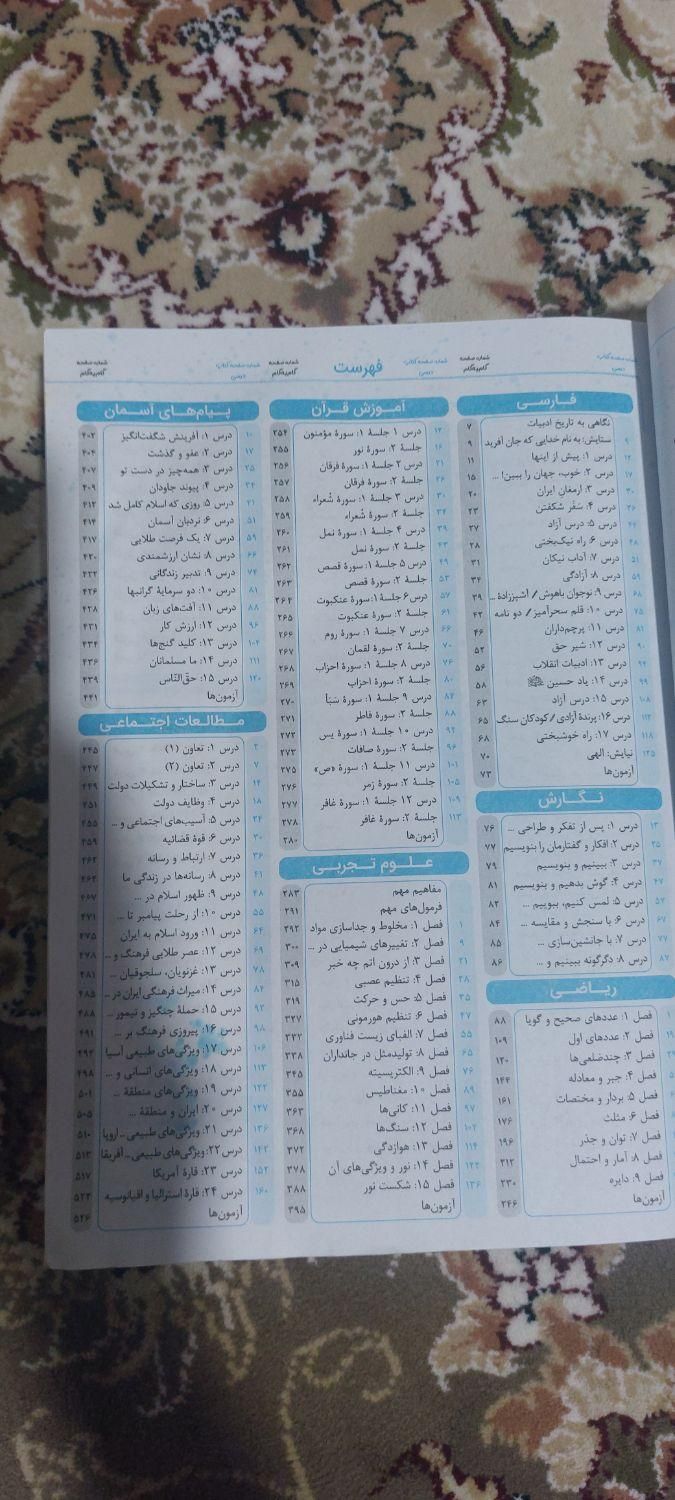 فهرست
شماره صفحه کتاب درسی
شماره صفحه گام‌به‌گام
فارسی
نگاهی به تاریخ ادبیات ۷
۹ ستایش: به نام خدایی که جان آفرید ۹
۱۲ درس ۱: پیش از اینها ۱۱
۱۷ درس ۲: خوب، جهان را ببین! ... ۱۵
۲۰ درس ۳: ارمغان ایران ۲۰
۲۶ درس ۴: سَفَر شکفتن ۲۳
درس ۵: درس آزاد ۲۷
۴۸ درس ۶: راه نیک‌بختی ۲۸
۵۱ درس ۷: آداب نیکان ۳۱
۵۹ درس ۸: آزادگی ۳۴
۶۸ درس ۹: نوجوان باهوش / آشپززادهٔ ... ۳۹
۷۵ درس ۱۰: قلم سحرآمیز / دو نامه ۴۲
۸۱ درس ۱۱: پرچم‌داران ۴۶
۹۰ درس ۱۲: شیر حق ۵۲
۹۴ درس ۱۳: ادبیات انقلاب ۵۶
۹۹ درس ۱۴: یاد حسین ۵۸
۱۰۸ درس ۱۵: درس آزاد ۶۳
۱۱۲ درس ۱۶: پرندهٔ آزادی / کودکان سنگ ۶۵
۱۱۸ درس ۱۷: راه خوشبختی ۶۸
۱۲۵ نیایش: الهی ۷۰
آزمون‌ها ۷۳
نگارش
۱۳ درس ۱: پس از تفکر و طراحی ... ۷۶
۲۵ درس ۲: افکار و گفتارمان را بنویسیم ۷۷
۳۷ درس ۳: ببینیم و بنویسیم ۷۹
۴۷ درس ۴: گوش بدهیم و بنویسیم ۸۱
۵۷ درس ۵: لمس کنیم، ببوییم ... ۸۲
۶۷ درس ۶: با سنجش و مقایسه ... ۸۴
۷۷ درس ۷: با جانشین‌سازی ... ۸۵
۸۷ درس ۸: دگرگونه ببینیم و ... ۸۶
ریاضی
فصل ۱: عددهای صحیح و گویا ۸۸
فصل ۲: عددهای اول ۱۰۹
فصل ۳: چندضلعی‌ها ۱۲۰
فصل ۴: جبر و معادله ۱۴۴
فصل ۵: بردار و مختصات ۱۶۱
فصل ۶: مثلث ۱۷۶
فصل ۷: توان و جذر ۱۹۶
فصل ۸: آمار و احتمال ۲۱۲
فصل ۹: دایره ۲۳۰
آزمون‌ها ۲۴۶
آموزش قرآن
۱۲ درس ۱ جلسهٔ ۱: سورهٔ مؤمنون ۲۵۴
۱۶ جلسهٔ ۲: سورهٔ نور ۲۵۵
۲۱ درس ۲ جلسهٔ ۱: سورهٔ فرقان ۲۵۶
۲۶ جلسهٔ ۲: سورهٔ فرقان ۲۵۷
۳۰ درس ۳ جلسهٔ ۱: سورهٔ شُعراء ۲۵۸
۳۴ جلسهٔ ۲: سورهٔ شُعراء ۲۵۹
۳۹ درس ۴ جلسهٔ ۱: سورهٔ نمل ۲۶۰
۴۳ جلسهٔ ۲: سورهٔ نمل ۲۶۱
۴۹ درس ۵ جلسهٔ ۱: سورهٔ قصص ۲۶۲
۵۳ جلسهٔ ۲: سورهٔ قصص ۲۶۳
۵۷ درس ۶ جلسهٔ ۱: سورهٔ عنکبوت ۲۶۴
۶۱ جلسهٔ ۲: سورهٔ عنکبوت ۲۶۵
۶۶ درس ۷ جلسهٔ ۱: سورهٔ روم ۲۶۶
۷۰ جلسهٔ ۲: سورهٔ لقمان ۲۶۷
۷۶ درس ۸ جلسهٔ ۱: سورهٔ احزاب ۲۶۸
۸۰ جلسهٔ ۲: سورهٔ احزاب ۲۶۹
۸۴ درس ۹ جلسهٔ ۱: سورهٔ سَبَأ ۲۷۰
۸۸ جلسهٔ ۲: سورهٔ فاطر ۲۷۱
۹۲ درس ۱۰ جلسهٔ ۱: سورهٔ یس ۲۷۲
۹۶ جلسهٔ ۲: سورهٔ صافات ۲۷۳
۱۰۱ درس ۱۱ جلسهٔ ۱: سورهٔ «ص» ۲۷۵
۱۰۵ جلسهٔ ۲: سورهٔ زمر ۲۷۶
۱۰۹ درس ۱۲ جلسهٔ ۱: سورهٔ غافر ۲۷۷
۱۱۳ جلسهٔ ۲: سورهٔ غافر ۲۷۸
آزمون‌ها ۲۸۰
علوم تجربی
مفاهیم مهم ۲۸۳
فرمول‌های مهم ۲۹۱
۱ فصل ۱: مخلوط و جداسازی مواد ۲۹۲
۹ فصل ۲: تغییرهای شیمیایی در ... ۳۰۰
۲۱ فصل ۳: از درون اتم چه خبر ۳۰۹
۲۸ فصل ۴: تنظیم عصبی ۳۱۵
۳۵ فصل ۵: حس و حرکت ۳۱۹
۴۷ فصل ۶: تنظیم هورمونی ۳۲۷
۵۵ فصل ۷: الفبای زیست فناوری ۳۳۲
۶۵ فصل ۸: تولیدمثل در جانداران ۳۳۸
۷۶ فصل ۹: الکتریسیته ۳۴۵
۸۹ فصل ۱۰: مغناطیس ۳۵۵
۹۷ فصل ۱۱: کانی‌ها ۳۶۳
۱۰۲ فصل ۱۲: سنگ‌ها ۳۶۸
۱۱۴ فصل ۱۳: هوازدگی ۳۷۲
۱۲۲ فصل ۱۴: نور و ویژگی‌های آن ۳۷۸
۱۳۶ فصل ۱۵: شکست نور ۳۸۸
آزمون‌ها ۳۹۵
پیام‌های آسمان
۱۰ درس ۱: آفرینش شگفت‌انگیز ۴۰۲
۱۷ درس ۲: عفو و گذشت ۴۰۴
۲۵ درس ۳: همه‌چیز در دست تو ۴۰۷
۳۴ درس ۴: پیوند جاودان ۴۰۹
۴۱ درس ۵: روزی که اسلام کامل شد ۴۱۲
۵۱ درس ۶: نردبان آسمان ۴۱۴
۵۹ درس ۷: یک فرصت طلایی ۴۱۷
۶۶ درس ۸: نشان ارزشمندی ۴۲۰
۷۴ درس ۹: تدبیر زندگانی ۴۲۲
۸۱ درس ۱۰: دو سرمایهٔ گرانبها ۴۲۶
۸۸ درس ۱۱: آفت‌های زبان ۴۲۸
۹۶ درس ۱۲: ارزش کار ۴۳۱
۱۰۴ درس ۱۳: کلید گنج‌ها ۴۳۴
۱۱۱ درس ۱۴: ما مسلمانان ۴۳۶
۱۲۰ درس ۱۵: حقّ‌النّاس ۴۳۹
آزمون‌ها ۴۴۱
مطالعات اجتماعی
۲ درس ۱: تعاون (۱) ۴۴۵
۷ درس ۲: تعاون (۲) ۴۴۷
۱۴ درس ۳: ساختار و تشکیلات دولت ۴۴۹
۱۸ درس ۴: وظایف دولت ۴۵۱
۲۴ درس ۵: آسیب‌های اجتماعی و ... ۴۵۵
۳۰ درس ۶: قوهٔ قضائیه ۴۵۹
۳۶ درس ۷: ارتباط و رسانه ۴۶۲
۴۱ درس ۸: رسانه‌ها در زندگی ما ۴۶۴
۴۸ درس ۹: ظهور اسلام در ... ۴۶۷
۵۵ درس ۱۰: از رحلت پیامبر تا ... ۴۷۱
۶۴ درس ۱۱: ورود اسلام به ایران ۴۷۵
۶۹ درس ۱۲: عصر طلایی فرهنگ و ... ۴۷۸
۷۸ درس ۱۳: غزنویان، سلجوقیان ... ۴۸۱
۸۴ درس ۱۴: میراث فرهنگی ایران در ... ۴۸۵
۹۲ درس ۱۵: حملهٔ چنگیز و تیمور ... ۴۸۸
۹۸ درس ۱۶: پیروزی فرهنگ بر ... ۴۹۱
۱۰۶ درس ۱۷: ویژگی‌های طبیعی آسیا ۴۹۴
۱۱۳ درس ۱۸: ویژگی‌های انسانی و ... ۴۹۸
۱۲۲ درس ۱۹: ویژگی‌های منطقهٔ ... ۵۰۱
۱۲۷ درس ۲۰: ایران و منطقهٔ ... ۵۰۵
۱۳۶ درس ۲۱: ویژگی‌های طبیعی ... اروپا ۵۱۰
۱۴۲ درس ۲۲: ویژگی‌های طبیعی ... آفریقا ۵۱۳
۱۵۲ درس ۲۳: قارهٔ آمریکا ۵۱۷
۱۶۰ درس ۲۴: قارهٔ استرالیا و اقیانوسیه ۵۲۳
آزمون‌ها ۵۲۶